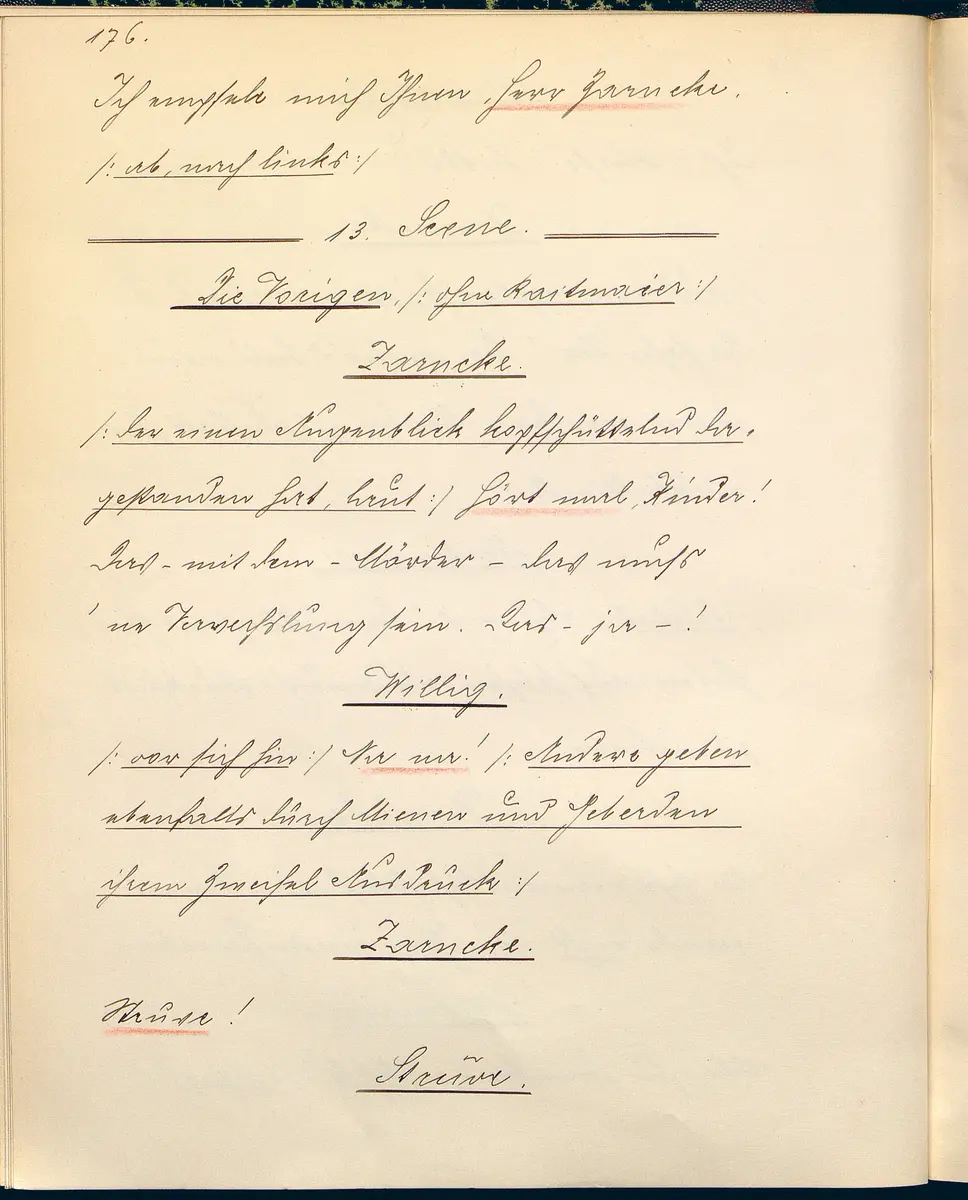 176.
Ich empfele mich Ihnen, Herr Zarncke.
/: ab, nach links :/
13. Scene.
Die Vorigen, /: ohne Raitmaier :/
Zarncke.
/: der einen Augenblick kopfschüttelnd da-
gestanden hat, laut :/ Hört mal, Kinder!
Das - mit dem - Mörder - das muß
'ne Verwechslung sein. Das - ja - !
Willig.
/: vor sich hin :/ Na na! /: Andere geben
ebenfalls durch Mienen und Geberden
ihrem Zweifel Ausdruck :/
Zarncke.
Struve!
Struve.